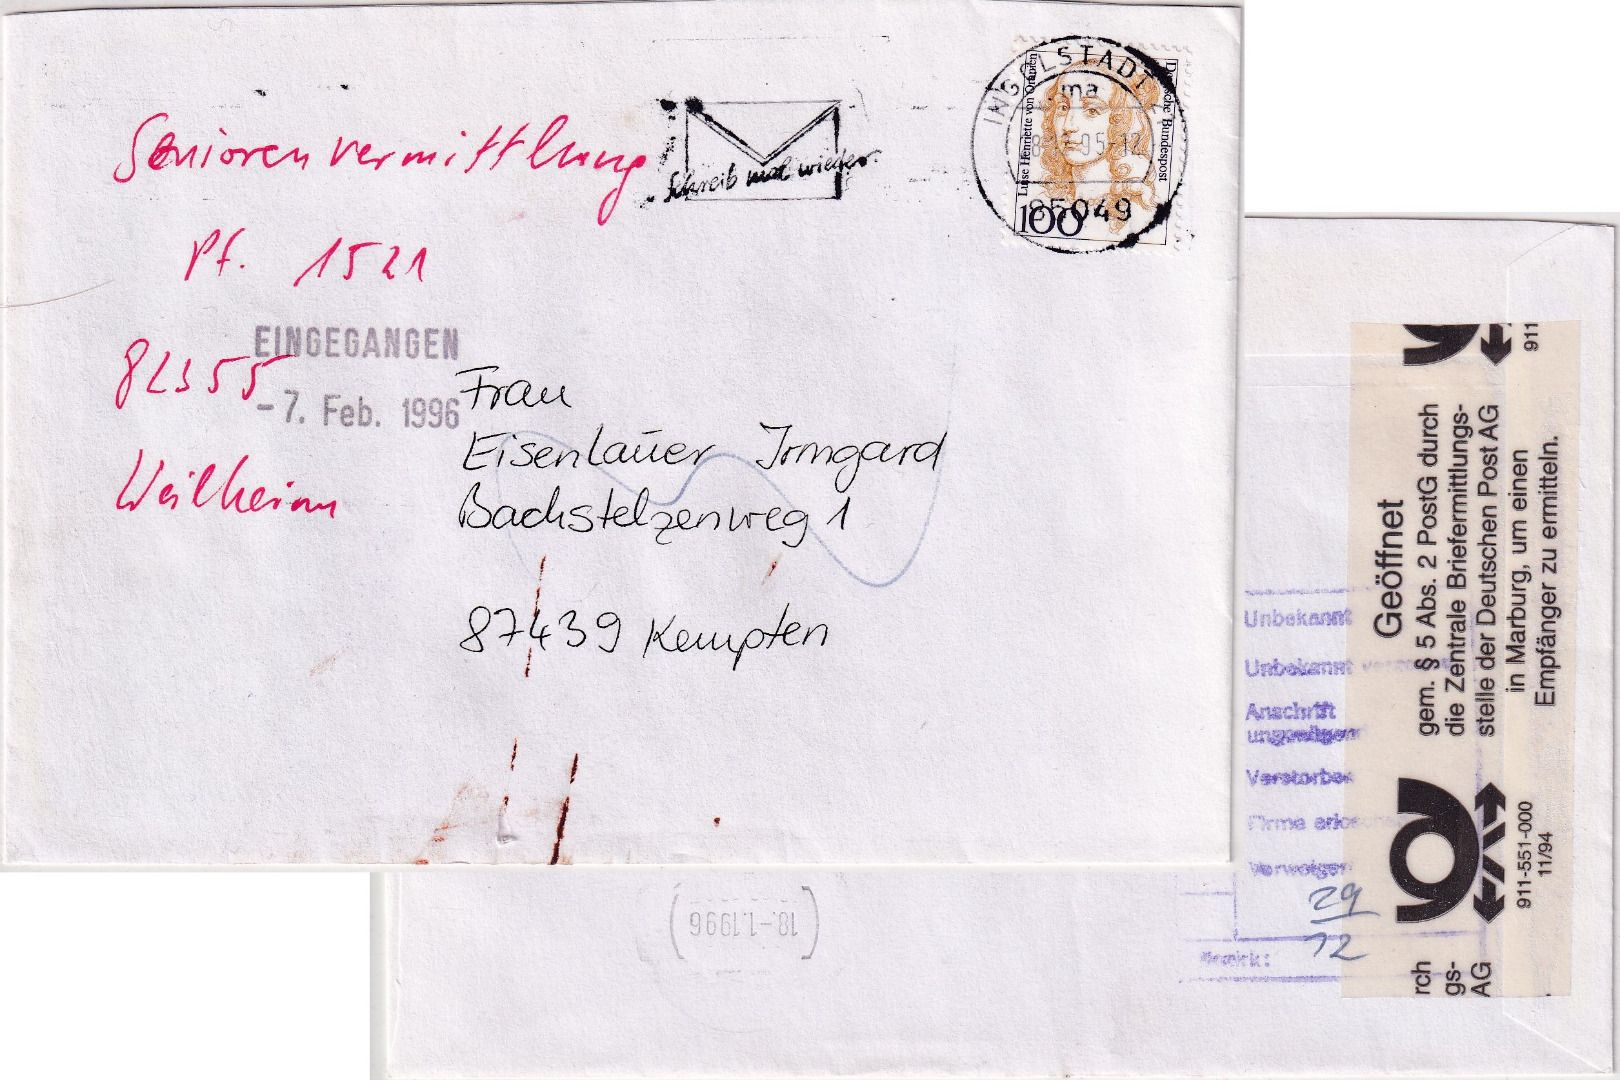 Seniorenvermittlung
Pf. 1521
82355
Weilheim
EINGEGANGEN
-7. Feb. 1996
Schreib mal wieder.
INGOLSTADT
ma
95-12
85049
Luise Henriette von Oranien
Deutsche Bundespost
100
Frau
Eisenlauer Irmgard
Bachstelzenweg 1
87439 Kempten
911
Geöffnet
gem. § 5 Abs. 2 PostG durch
die Zentrale Briefermittlungs-
stelle der Deutschen Post AG
in Marburg, um einen
Empfänger zu ermitteln.
911-551-000
11/94
rch
gs-
AG
Unbekannt
Unbekannt
Anschrift
Verstorben
Firma
29
12
(18.-1.1996)